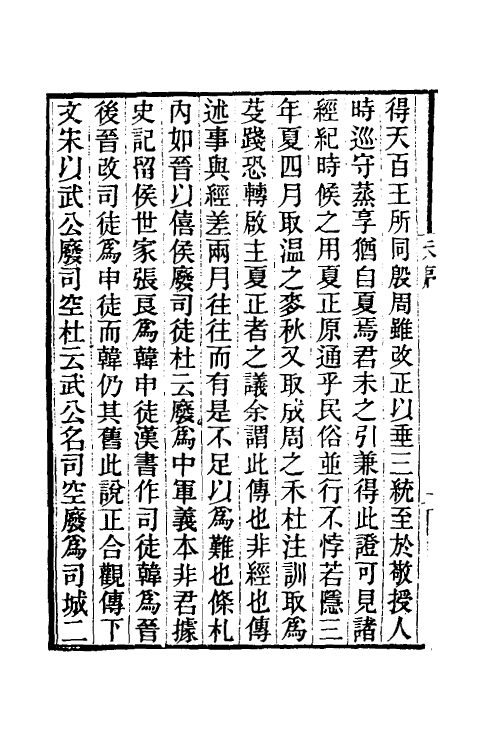 得天百王所同殷周雖改正以垂三統至於敬授人
時巡守蒸享猶自夏焉君未之引兼得此證可見諸
經紀時候之用夏正原通乎民俗並行不悖若隱三
年夏四月取温之麥秋又取成周之禾杜注訓取爲
芟踐恐轉啟主夏正者之議余謂此傳也非經也傳
述事與經差兩月往往而有是不足以爲難也條札
內如晉以僖侯廢司徒杜云廢爲中軍義本非君據
史記留侯世家張良爲韓申徒漢書作司徒韓爲晉
後晉改司徒爲申徒而韓仍其舊此說正合觀傳下
文宋以武公廢司空杜云武公名司空廢爲司城二